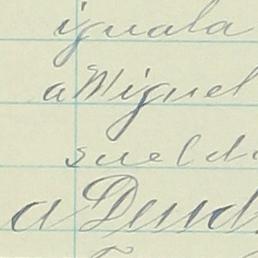 iguala
a Miguel
sueldo
a Deud